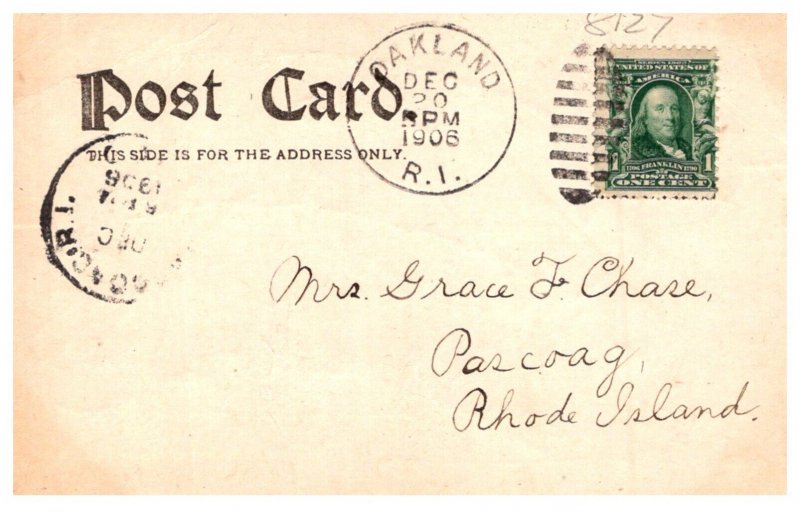 8127
Post Card
THIS SIDE IS FOR THE ADDRESS ONLY.
OAKLAND
DEC
20
PM
1906
R.I.
SERIES 1902
UNITED STATES OF
AMERICA
1706 FRANKLIN 1790
1 POSTAGE 1
ONE CENT
1906
DEC
R.I.
Mrs. Grace F. Chase,
Pascoag,
Rhode Island.